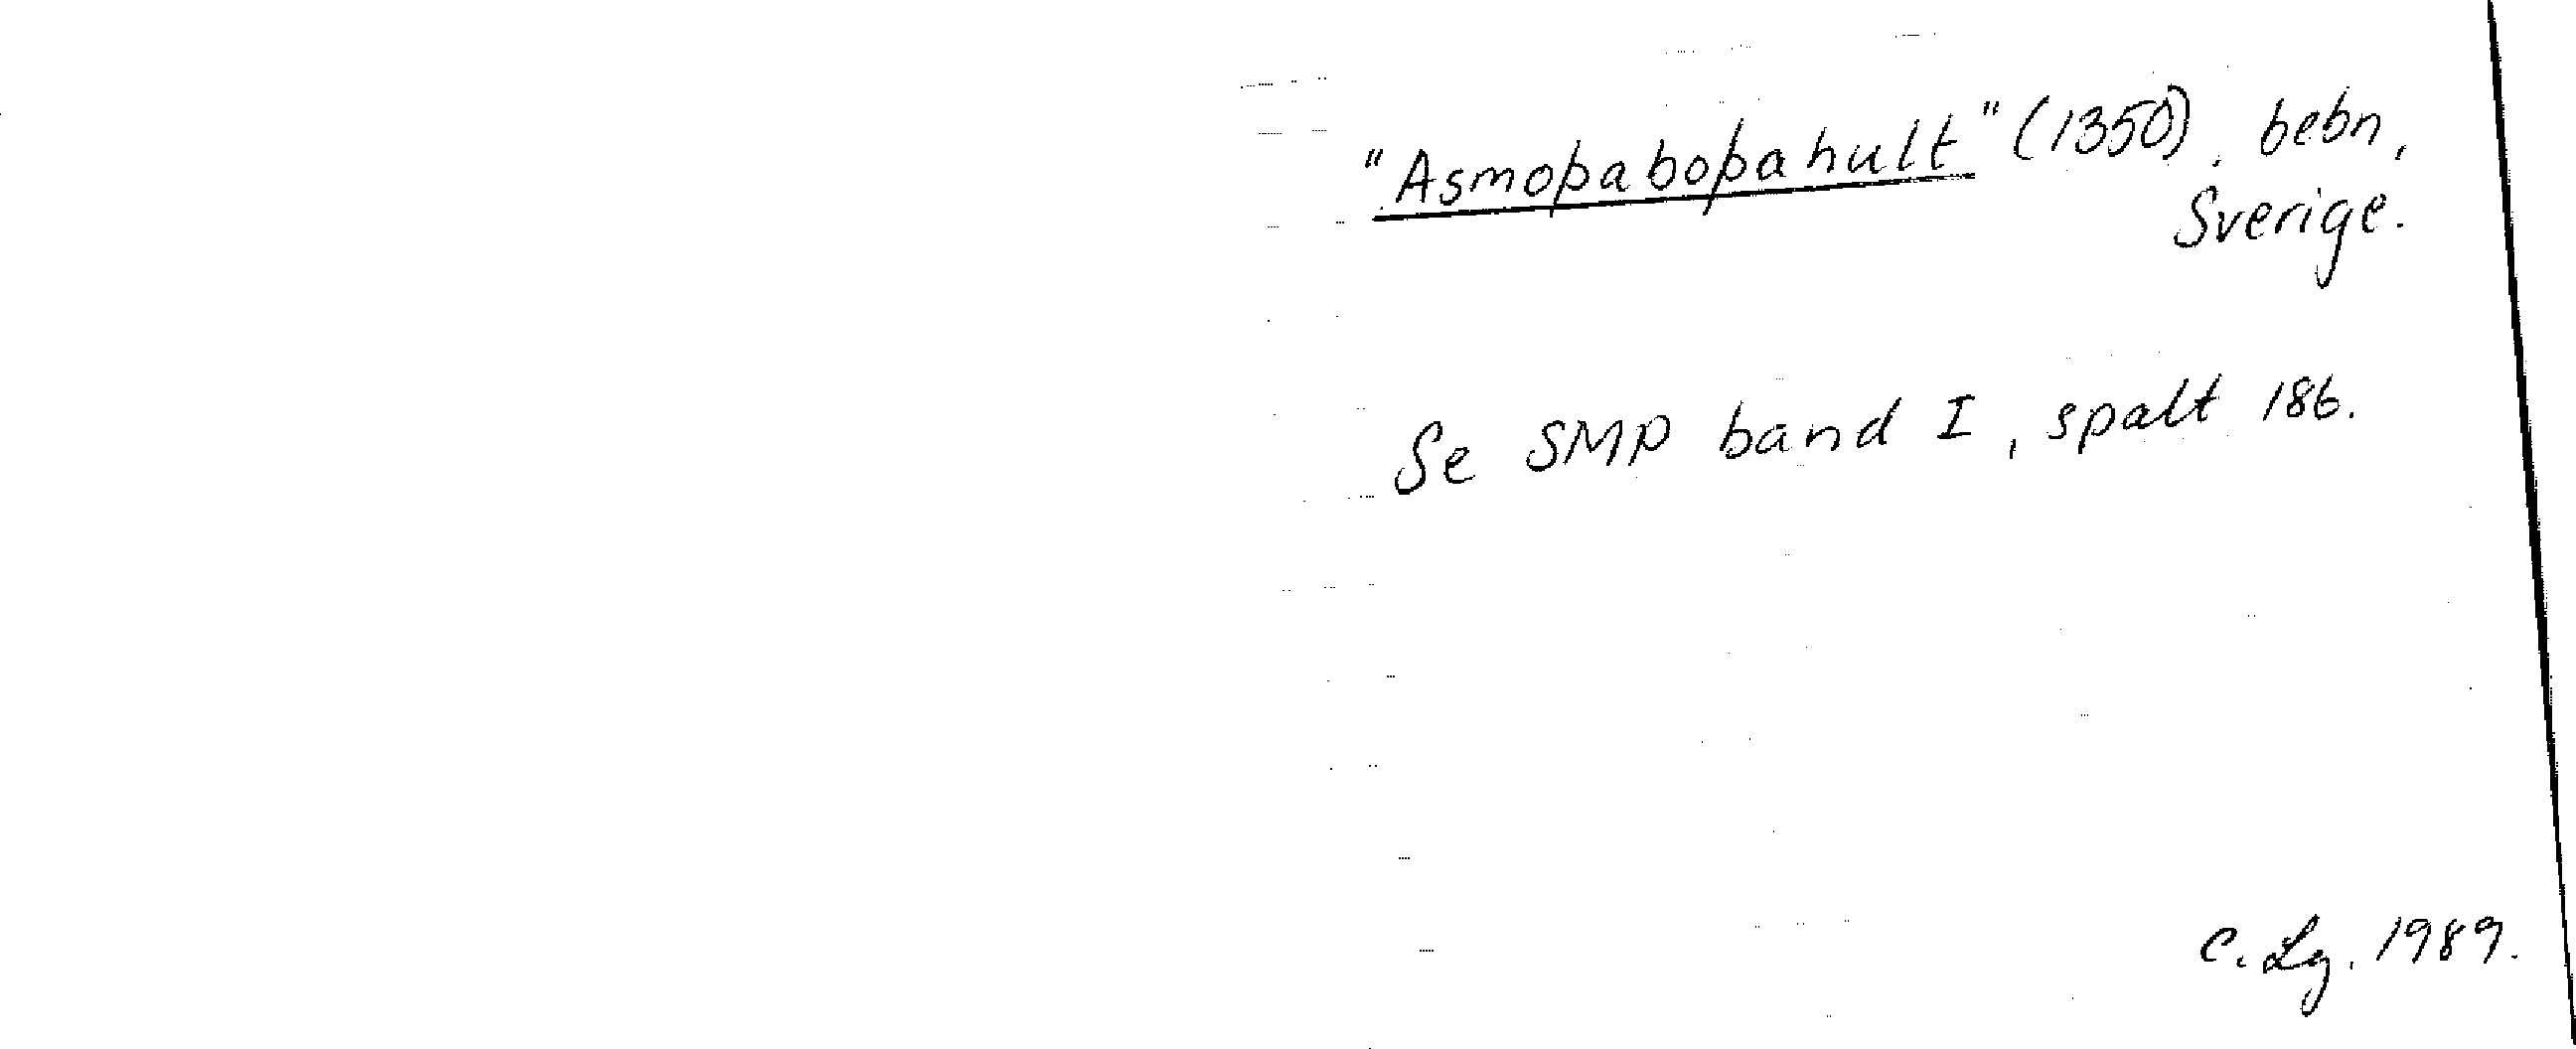 "Asmoþaboþahult" (1350), bebn,
Sverige.
Se SMP band I, spalt 186.
C. Lg. 1989.